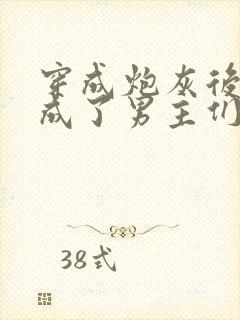 穿成炮灰後
成了男主们
38式